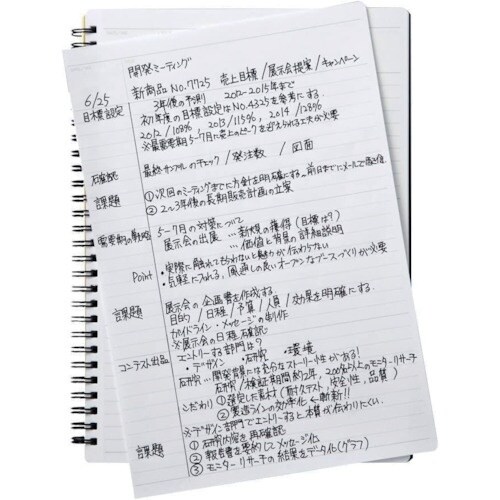 開発ミーティング
6/25 新商品No.7725 売上目標/展示会提案/キャンペーン
目標設定 3年後の予測 2012〜2015年まで
初年度の目標設定はNo.4325を参考にする.
2012/108% 2013/115%, 2014/128%
※最需要期5〜7月に売上のピークを迎えられる工夫が必要
確認 最終サンプルのチェック/発注数/図面
課題 ①次回のミーティングまでに方針を明確にする…前日までにメールで返信
②2〜3年後の長期販売計画の立案
需要期の戦略 5〜7月の対策について
展示会の出展 …新規の獲得(目標は?)
…価値と背景の詳細説明
Point ・実際に触れてもらわないと魅力が伝わらない
・気軽に入れる,風通しの良いオープンなブースづくりが必要
課題 展示会の企画書を作成する.
目的/日程/予算/人員/効果を明確にする.
ガイドライン・メッセージの制作
※展示会の日程確認
コンテスト出品 エントリーする部門は?
・デザイン ・研究 ・環境
研究…開発背景には充分なストーリー性がある!
研究/検証期間約2年, 200名以上のモニターリサーチ
こだわり ①選定した素材(耐久テスト,安全性,品質)
②製造ラインの効率化←斬新!!
※デザイン部門でエントリーすると本質が伝わりにくい.
課題 ①研究内容を再確認
②報告書を要約してメッセージ化
③モニターリサーチの結果をデータ化(グラフ)